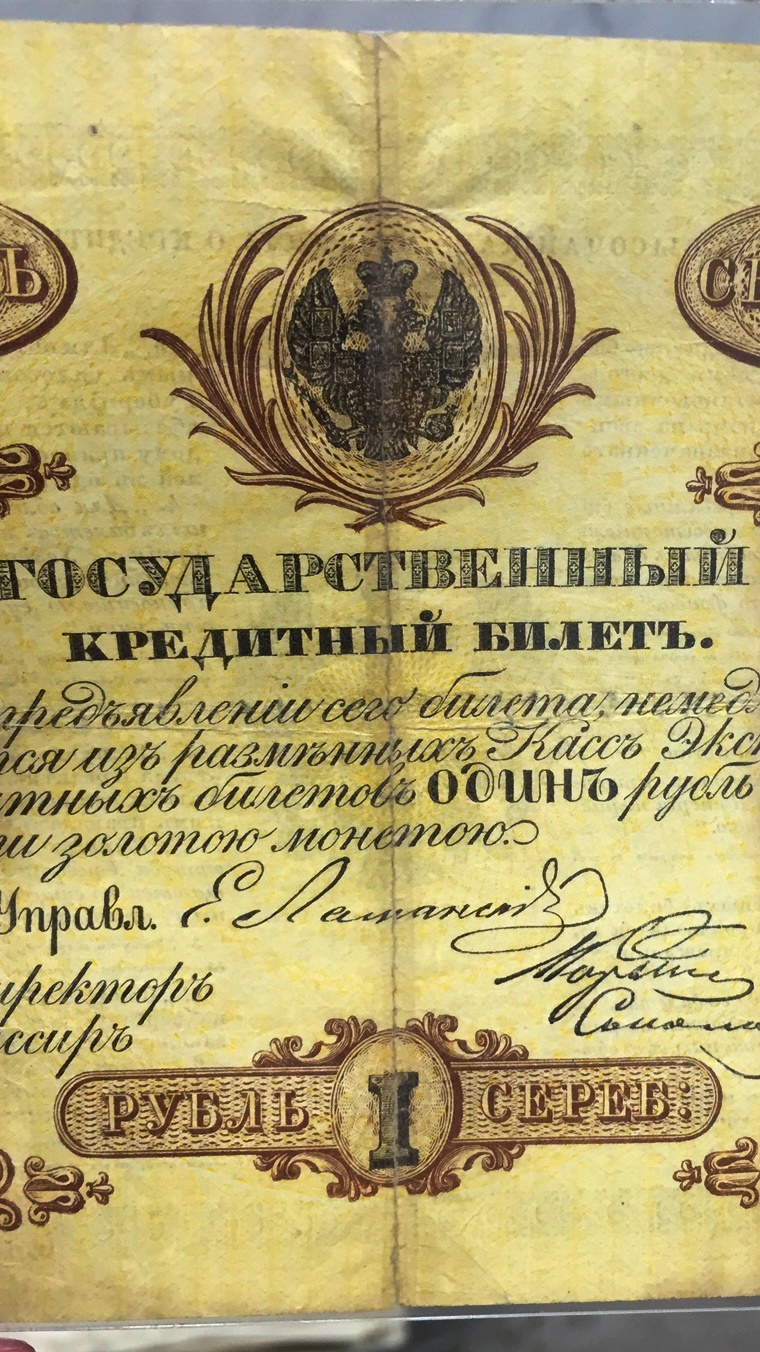 Ъ
СЕ
ГОСУДАРСТВЕННЫЙ
КРЕДИТНЫЙ БИЛЕТЪ.
предъявленіи сего билета, немедл
тся изъ размѣнныхъ Кассъ Эксп
итныхъ билетовъ ОДИНЪ рубль
ли золотою монетою.
Управл. Е. Ламанскій
иректоръ
ссиръ
РУБЛЬ 1 СЕРЕБ: